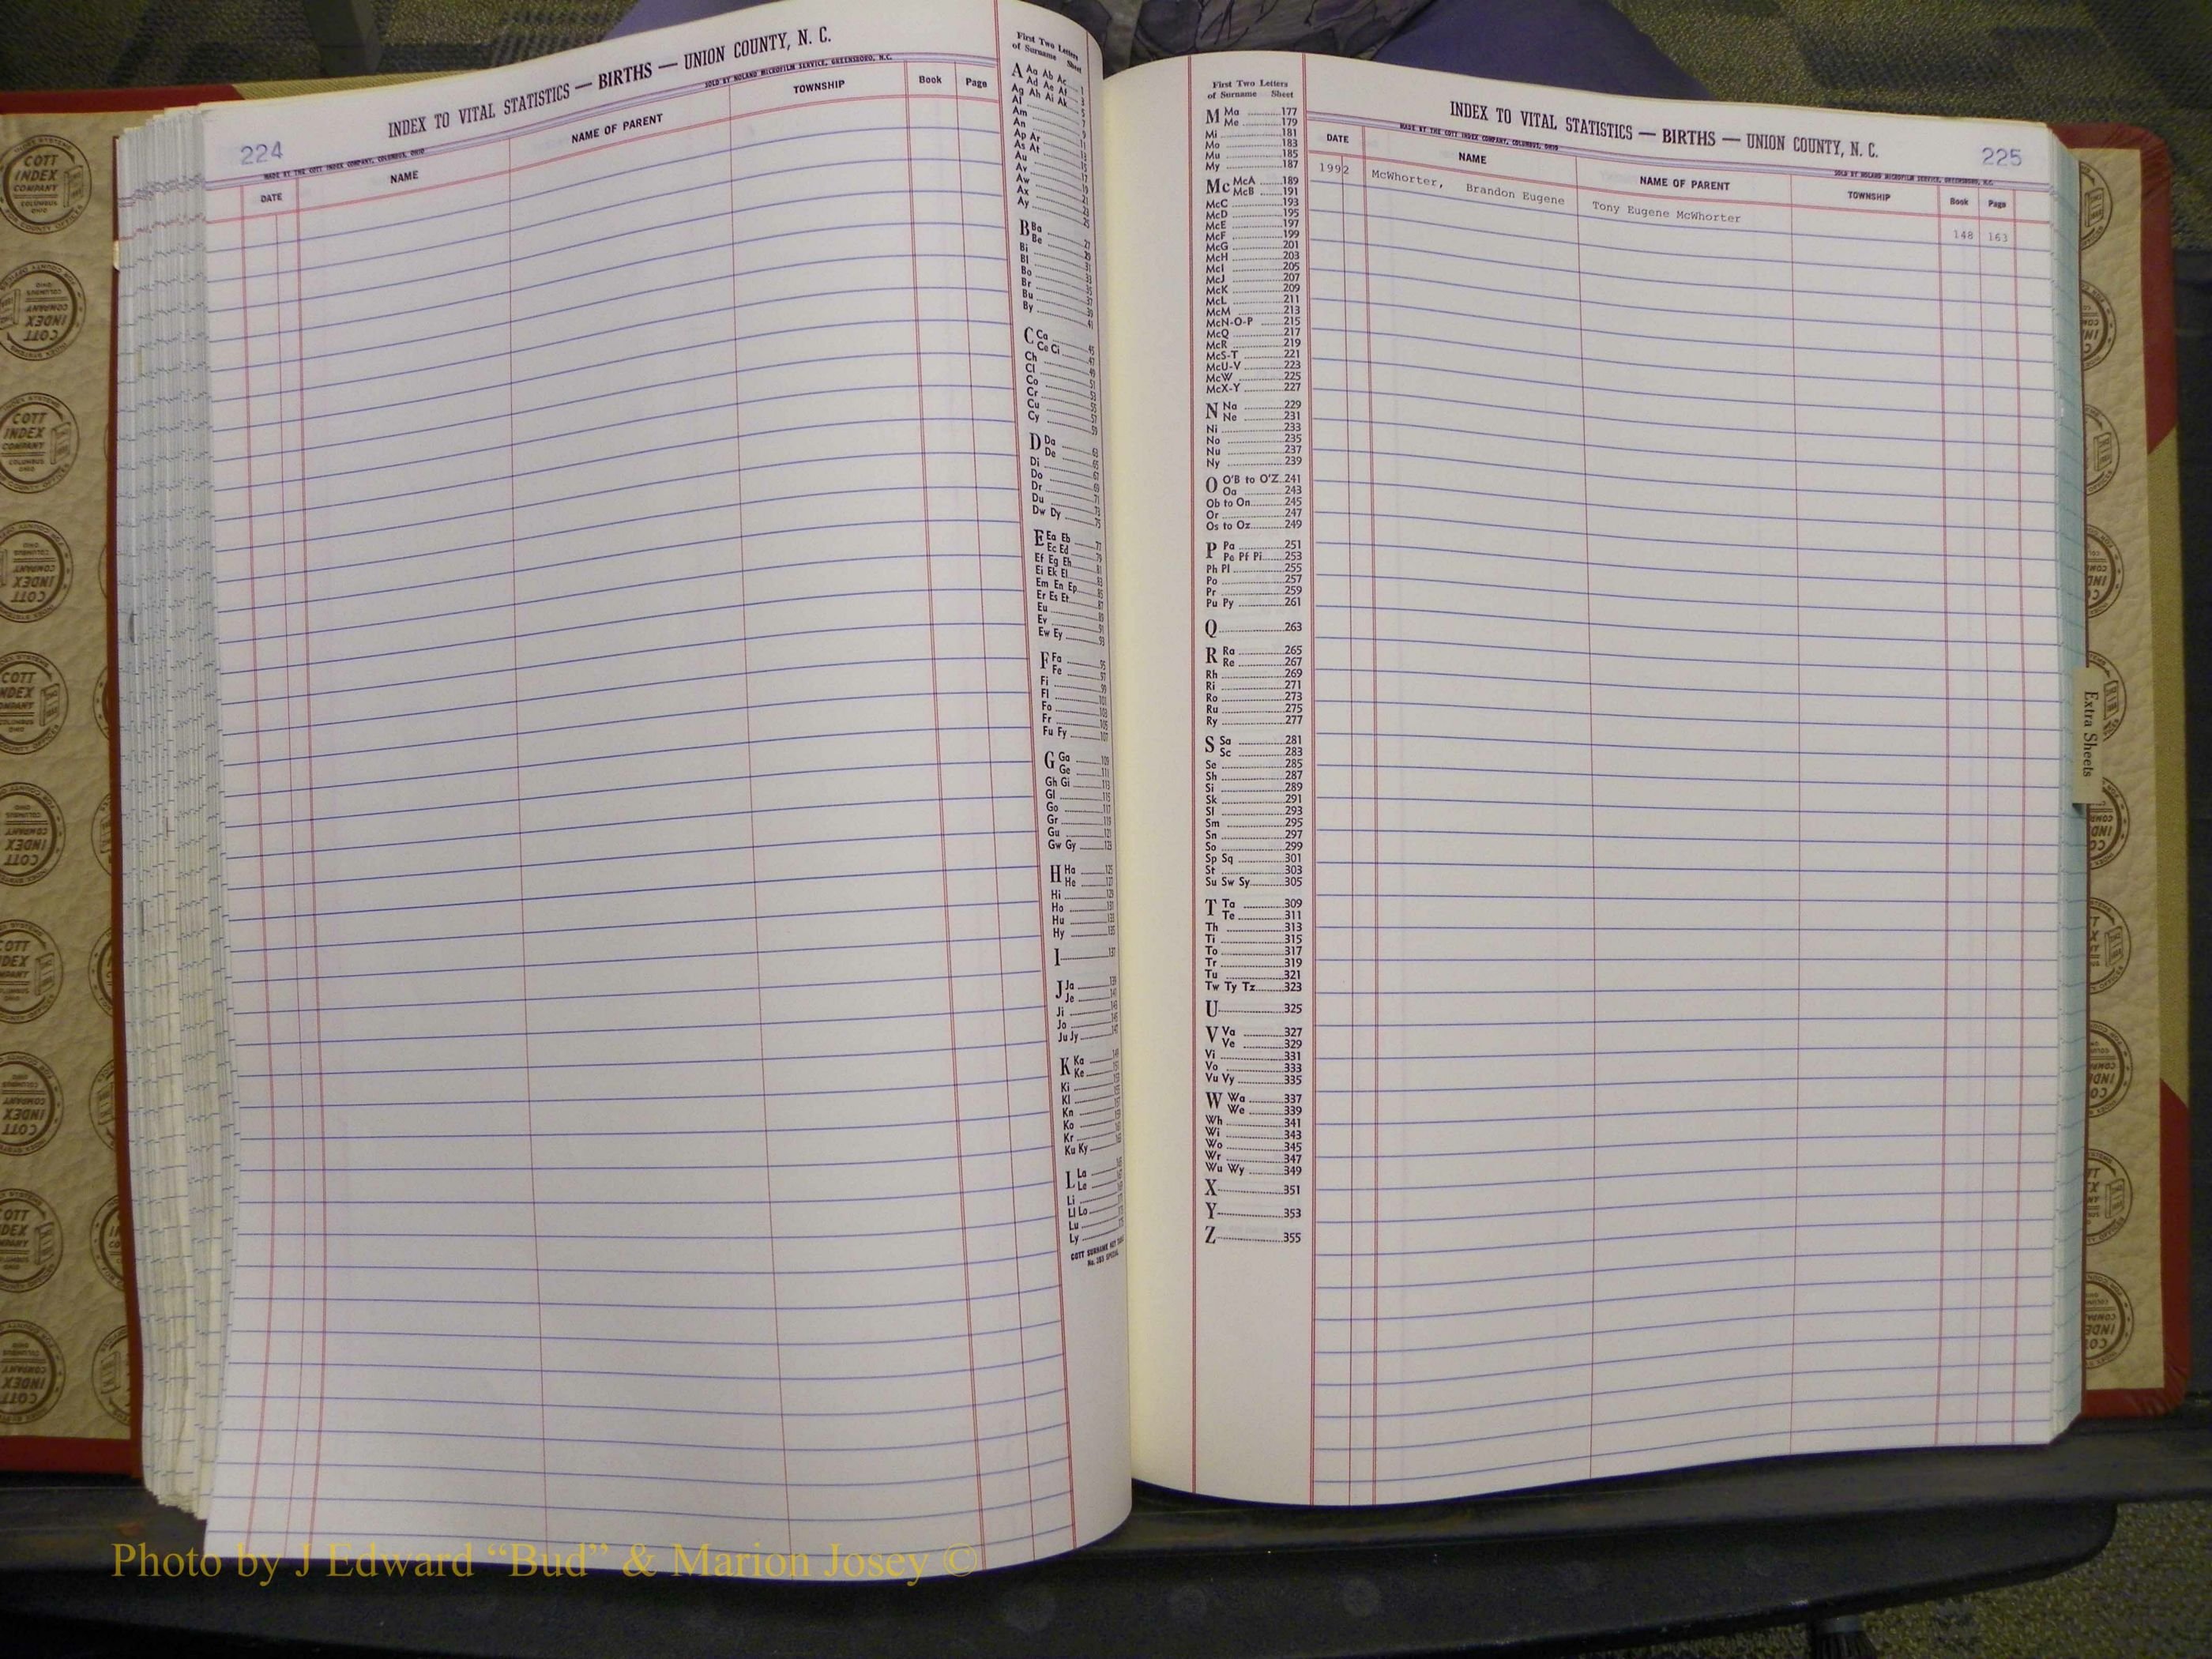 224
INDEX TO VITAL STATISTICS — BIRTHS — UNION COUNTY, N. C.
MADE BY THE COTT INDEX COMPANY, COLUMBUS, OHIO
SOLD BY NOLAND MICROFILM SERVICE, GREENSBORO, N.C.
DATE NAME NAME OF PARENT TOWNSHIP Book Page
First Two Letters
of Surname Sheet
A Aa Ab Ac 1
Ad Ae Af 3
Ag Ah Ai Ak 5
Al 7
Am 9
An 11
Ap Ar 13
As At 15
Au 17
Av 19
Aw 21
Ax 23
Ay 25
B Ba 27
Be 29
Bi 31
Bl 33
Bo 35
Br 37
Bu 39
By 41
C Ca 45
Ce Ci 47
Ch 49
Cl 51
Co 53
Cr 55
Cu 57
Cy 59
D Da 63
De 65
Di 67
Do 69
Dr 71
Du 73
Dw Dy 75
E Ea Eb 77
Ec Ed 79
Ef Eg Eh 81
Ei Ek El 83
Em En Ep 85
Er Es Et 87
Eu 89
Ev 91
Ew Ey 93
F Fa 95
Fe 97
Fi 99
Fl 101
Fo 103
Fr 105
Fu Fy 107
G Ga 109
Ge 111
Gh Gi 113
Gl 115
Go 117
Gr 119
Gu 121
Gw Gy 123
H Ha 125
He 127
Hi 129
Ho 131
Hu 133
Hy 135
I 137
J Ja 139
Je 141
Ji 143
Jo 145
Ju Jy 147
K Ka
Ke
Ki
Kl
Kn
Ko
Kr
Ku Ky
L La
Le
Li
Ll Lo
Lu
Ly
COTT SURNAME KEY
No. 283 SPECIAL
First Two Letters
of Surname Sheet
M Ma 177
Me 179
Mi 181
Mo 183
Mu 185
My 187
Mc McA 189
McB 191
McC 193
McD 195
McE 197
McF 199
McG 201
McH 203
McI 205
McJ 207
McK 209
McL 211
McM 213
McN-O-P 215
McQ 217
McR 219
McS-T 221
McU-V 223
McW 225
McX-Y 227
N Na 229
Ne 231
Ni 233
No 235
Nu 237
Ny 239
O O'B to O'Z 241
Oa 243
Ob to On 245
Or 247
Os to Oz 249
P Pa 251
Pe Pf Pi 253
Ph Pl 255
Po 257
Pr 259
Pu Py 261
Q 263
R Ra 265
Re 267
Rh 269
Ri 271
Ro 273
Ru 275
Ry 277
S Sa 281
Sc 283
Se 285
Sh 287
Si 289
Sk 291
Sl 293
Sm 295
Sn 297
So 299
Sp Sq 301
St 303
Su Sw Sy 305
T Ta 309
Te 311
Th 313
Ti 315
To 317
Tr 319
Tu 321
Tw Ty Tz 323
U 325
V Va 327
Ve 329
Vi 331
Vo 333
Vu Vy 335
W Wa 337
We 339
Wh 341
Wi 343
Wo 345
Wr 347
Wu Wy 349
X 351
Y 353
Z 355
INDEX TO VITAL STATISTICS — BIRTHS — UNION COUNTY, N. C.
225
MADE BY THE COTT INDEX COMPANY, COLUMBUS, OHIO
SOLD BY NOLAND MICROFILM SERVICE, GREENSBORO, N.C.
DATE NAME NAME OF PARENT TOWNSHIP Book Page
1992 McWhorter, Brandon Eugene Tony Eugene McWhorter 148 163
Extra Sheets
COTT
INDEX
COMPANY
COLUMBUS
OHIO
Photo by J Edward “Bud” & Marion Josey ©